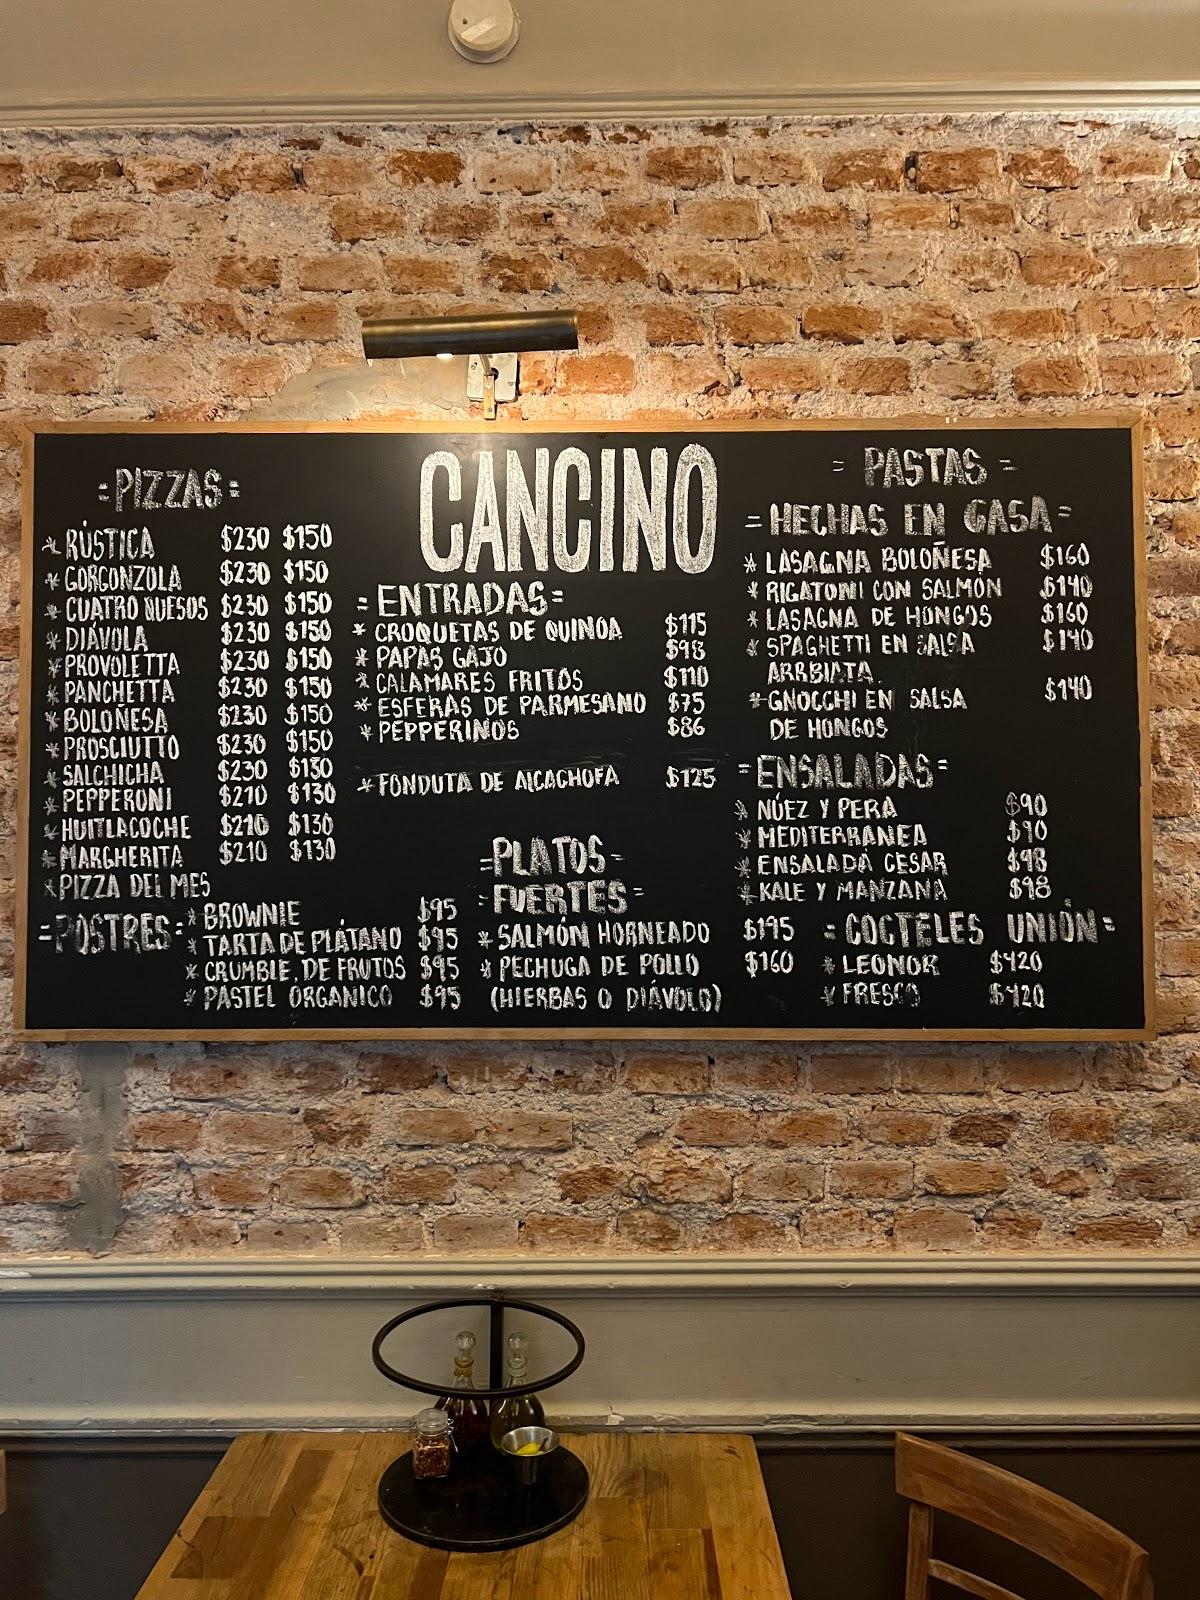 CANCINO
=PIZZAS=
* RÚSTICA $230 $150
* GORGONZOLA $230 $150
* CUATRO QUESOS $230 $150
* DIÁVOLA $230 $150
* PROVOLETTA $230 $150
* PANCHETTA $230 $150
* BOLOÑESA $230 $150
* PROSCIUTTO $230 $150
* SALCHICHA $230 $130
* PEPPERONI $210 $130
* HUITLACOCHE $210 $130
* MARGHERITA $210 $130
* PIZZA DEL MES
=POSTRES=
* BROWNIE $95
* TARTA DE PLÁTANO $95
* CRUMBLE DE FRUTOS $95
* PASTEL ÓRGANICO $95
=ENTRADAS=
* CROQUETAS DE QUINOA $115
* PAPAS GAJO $98
* CALAMARES FRITOS $110
* ESFERAS DE PARMESANO $75
* PEPPERINOS $86
* FONDUTA DE ALCACHOFA $125
=PLATOS=
FUERTES=
* SALMÓN HORNEADO $195
* PECHUGA DE POLLO $160
(HIERBAS O DIÁVOLO)
= PASTAS =
= HECHAS EN CASA =
* LASAGNA BOLOÑESA $160
* RIGATONI CON SALMÓN $140
* LASAGNA DE HONGOS $160
* SPAGHETTI EN SALSA $140
ARRBIATA
* GNOCCHI EN SALSA $140
DE HONGOS
=ENSALADAS=
* NÚEZ Y PERA $90
* MEDITERRANEA $90
* ENSALADA CESAR $98
* KALE Y MANZANA $98
= COCTELES UNIÓN =
* LEONOR $120
* FRESCO $120